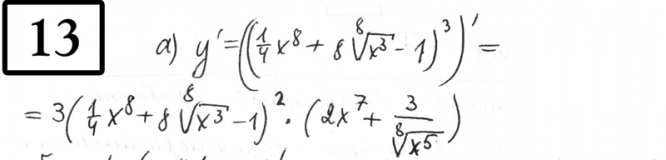 13 а) y' = ((1/4 x⁸ + 8 ⁸√x³ - 1)³)' =
= 3(1/4 x⁸ + 8 ⁸√x³ - 1)² · (2x⁷ + 3/⁸√x⁵)